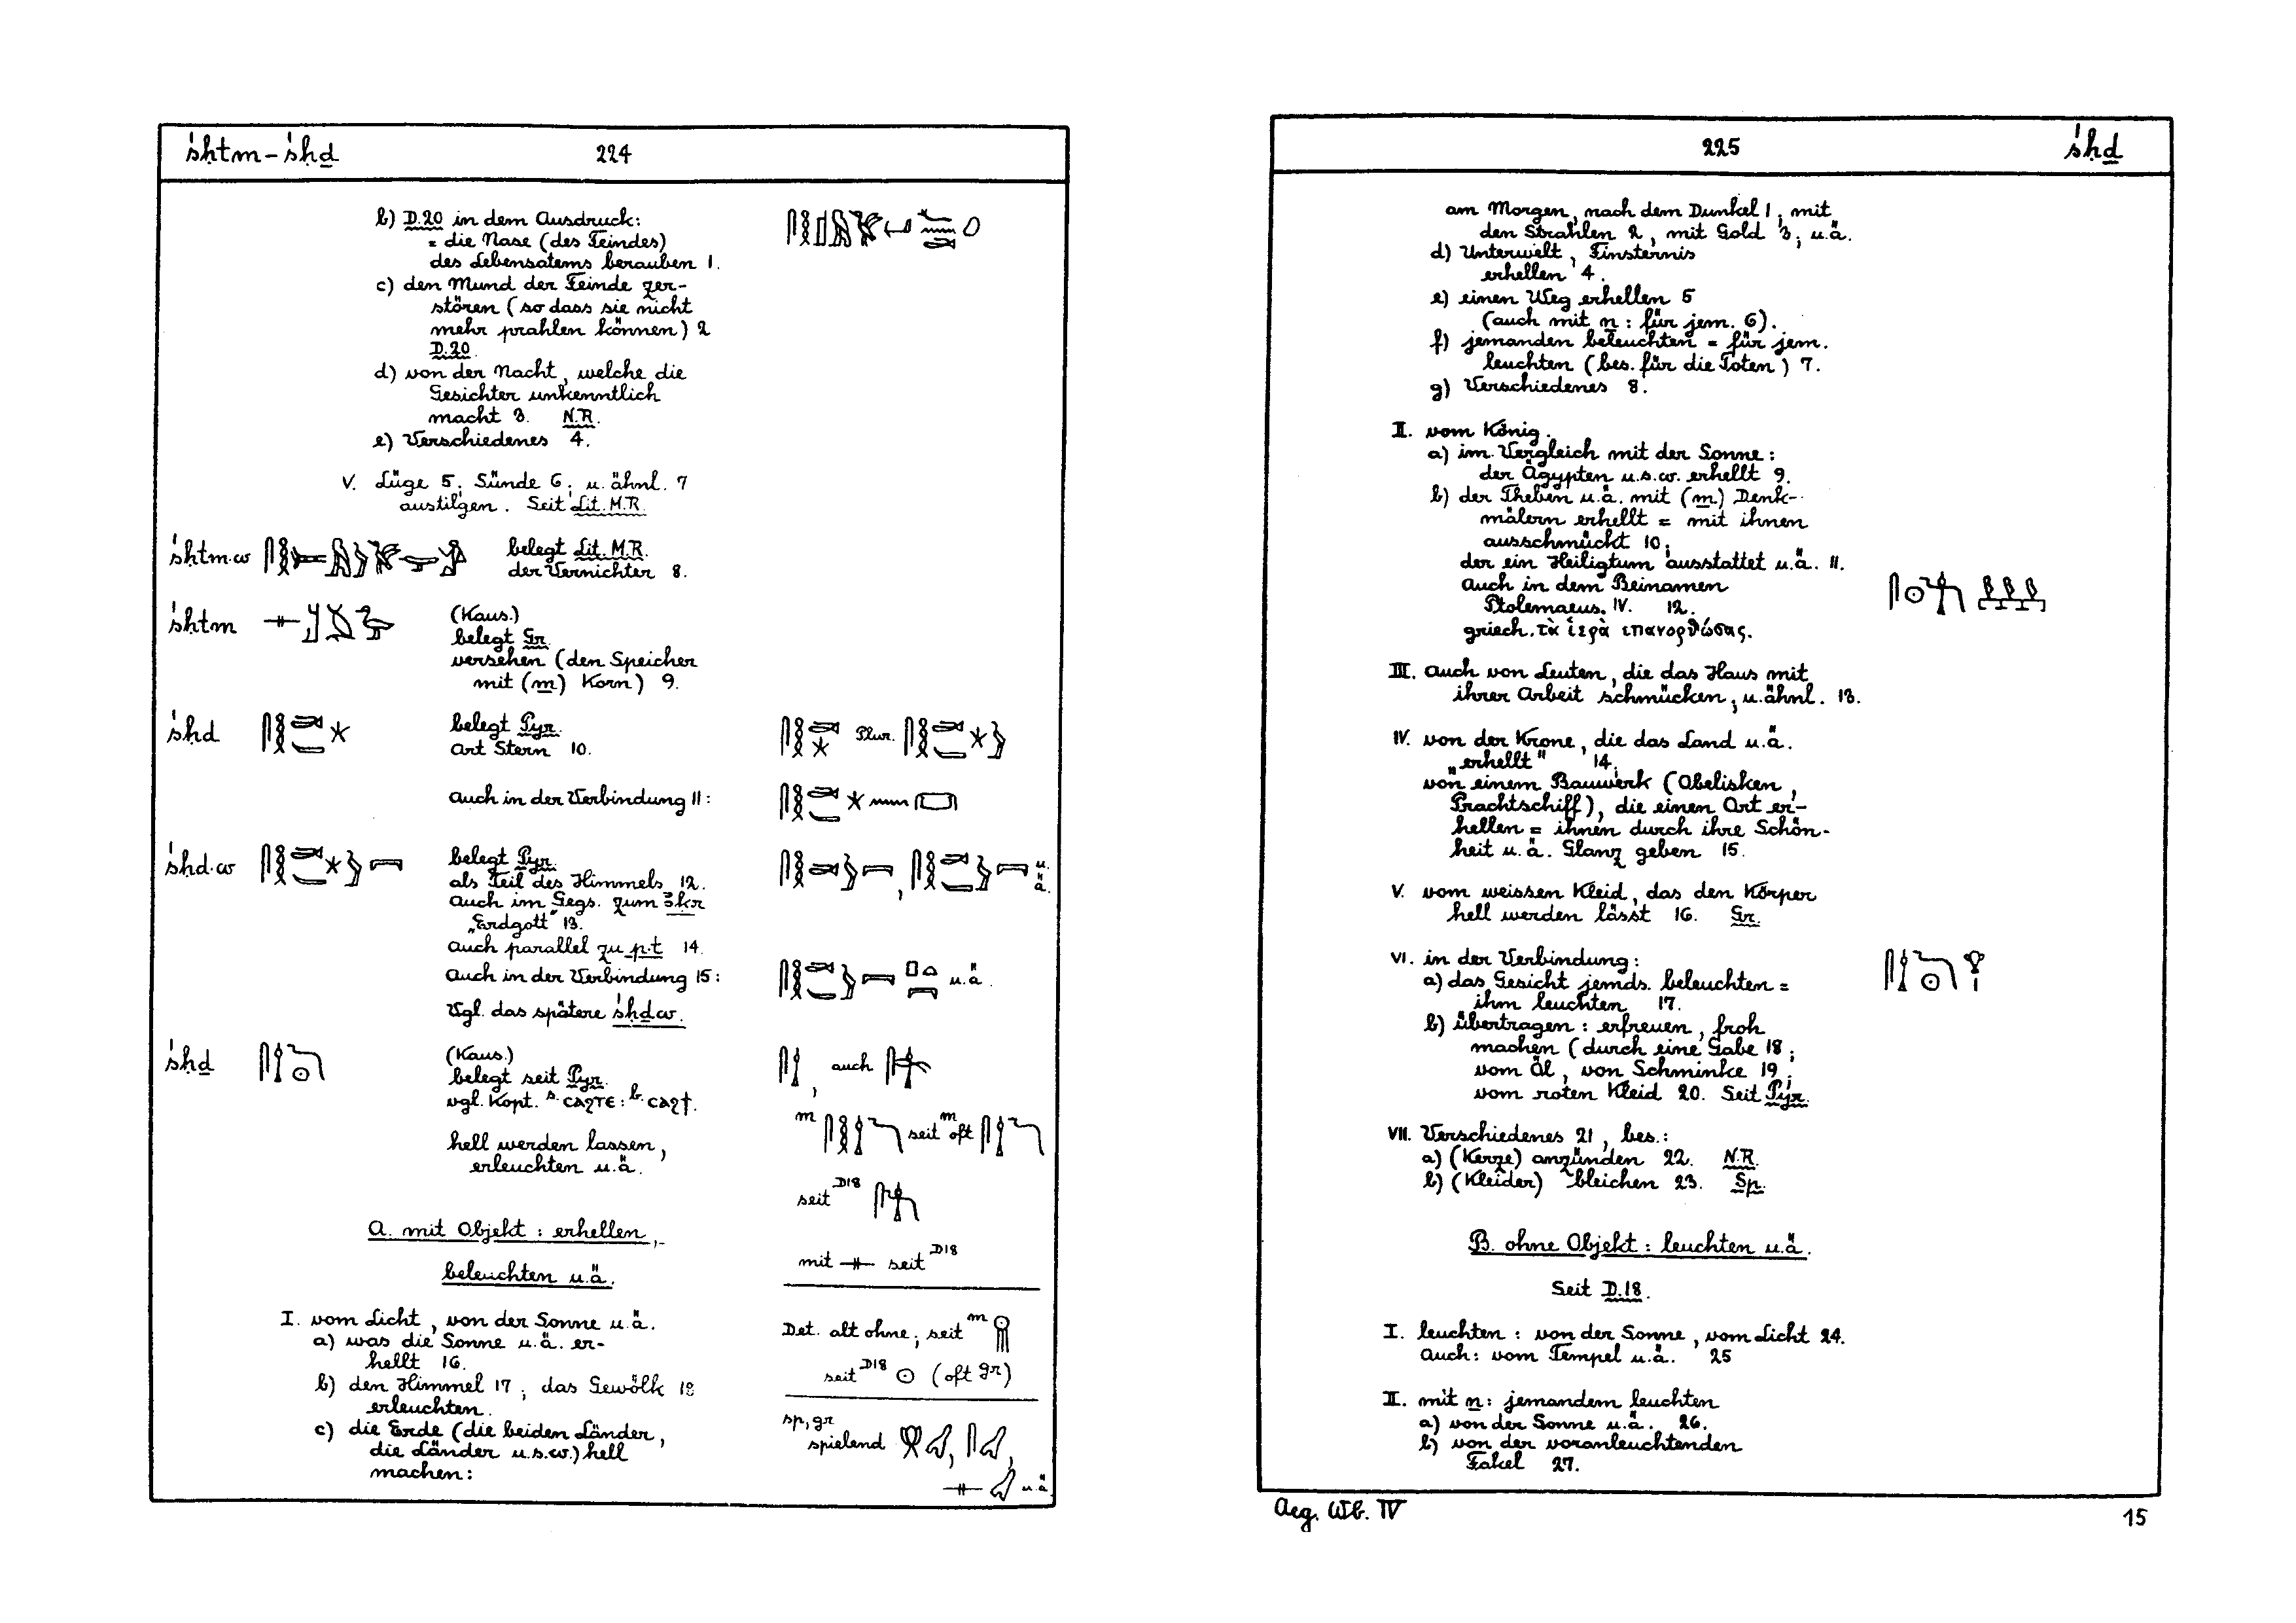 śḥtm – śḥḏ 224
b) D.20 in dem Ausdruck:
= die Nase (des Feindes)
des Lebensatems berauben 1.
c) den Mund der Feinde zer-
stören (so dass sie nicht
mehr prahlen können) 2
D.20.
d) von der Nacht, welche die
Gesichter unkenntlich
macht 3. N.R.
e) Verschiedenes 4.
V. Lüge 5; Sünde 6; u. ähnl. 7
austilgen. Seit Lit. M.R.
śḥtm·w belegt Lit. M.R.
der Vernichter 8.
śḥtm (Kaus.)
belegt Gr.
versehen (den Speicher
mit (m) Korn) 9.
śḥd belegt Pyr.
Art Stern 10. Plur.
Auch in der Verbindung 11:
śḥd·w belegt Pyr.
als Teil des Himmels 12. , u. ä.
Auch im Gegs. zum ꜣkr
„Erdgott" 13.
Auch parallel zu p.t 14.
Auch in der Verbindung 15: u. ä.
Vgl. das spätere śḥdw.
śḥḏ (Kaus.)
belegt seit Pyr. , auch
vgl. Kopt. s. ⲥⲁϩⲧⲉ : b. ⲥⲁϩϯ.
m seit m oft
hell werden lassen,
erleuchten u. ä.
seit D18
A. mit Objekt : erhellen,
mit seit D18
beleuchten u. ä.
I. vom Licht, von der Sonne u. ä.
Det. alt ohne; seit m
a) was die Sonne u. ä. er-
hellt 16.
seit D18 (oft gr)
b) den Himmel 17; das Gewölk 18
erleuchten.
c) die Erde (die beiden Länder,
die Länder u.s.w.) hell
machen:
sp, gr
spielend , ,
u. ä.
225 śḥḏ
am Morgen, nach dem Dunkel 1; mit
den Strahlen 2, mit Gold 3; u. ä.
d) Unterwelt, Finsternis
erhellen 4.
e) einen Weg erhellen 5
(auch mit n : für jem. 6).
f) jemanden beleuchten = für jem.
leuchten (bes. für die Toten) 7.
g) Verschiedenes 8.
II. vom König.
a) im Vergleich mit der Sonne:
der Ägypten u.s.w. erhellt 9.
b) der Theben u. ä. mit (m) Denk-
mälern erhellt = mit ihnen
ausschmückt 10;
der ein Heiligtum ausstattet u. ä. 11.
Auch in dem Beinamen
Ptolemaeus. IV. 12.
griech. τὰ ἱερὰ επανορθώσας.
III. Auch von Leuten, die das Haus mit
ihrer Arbeit schmücken, u. ähnl. 13.
IV. von der Krone, die das Land u. ä.
„erhellt" 14;
von einem Bauwerk (Obelisken,
Prachtschiff), die einen Ort er-
hellen = ihnen durch ihre Schön-
heit u. ä. Glanz geben 15.
V. vom weissen Kleid, das den Körper
hell werden lässt 16. Gr.
VI. in der Verbindung:
a) das Gesicht jemds. beleuchten =
ihm leuchten 17.
b) übertragen : erfreuen, froh
machen (durch eine Gabe 18;
vom Öl, von Schminke 19;
vom roten Kleid 20. Seit Pyr.
VII. Verschiedenes 21, bes.:
a) (Kerze) anzünden 22. N.R.
b) (Kleider) bleichen 23. Sp.
B. ohne Objekt : leuchten u. ä.
Seit D.18.
I. leuchten : von der Sonne, vom Licht 24.
Auch: vom Tempel u. ä. 25
II. mit n: jemandem leuchten
a) von der Sonne u. ä. 26.
b) von der voranleuchtenden
Fakel 27.
Aeg. Wb. IV 15